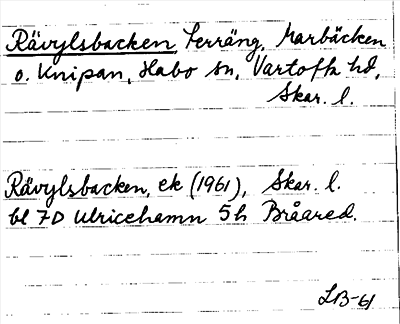 Rävylsbacken, Terräng, Marbäcken
o. Knipan, Habo sn, Vartofta hd,
Skar. l.
Rävylsbacken, ek (1961), Skar. l.
bl 7D Ulricehamn 5h Bråared.
LB-61